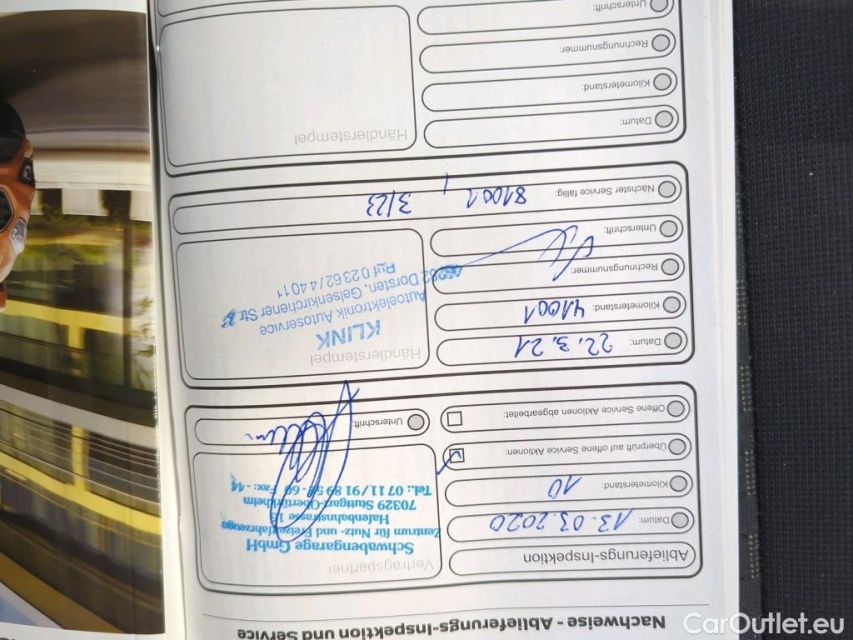 Nachweise - Ablieferungs-Inspektion und Service
Ablieferungs-Inspektion
Datum: 13.03.2020
Kilometerstand: 10
Überprüft auf offene Service Aktionen:
Offene Service Aktionen abgearbeitet:
Vertragspartner
Schwabengarage GmbH
Zentrum für Nutz- und Freizeitfahrzeuge
Hafenbahnstrasse
70329 Stuttgart-Obertürkheim
Tel.: 07 11/91 89 Fax: - 44
Unterschrift:
Datum: 22.3.21
Kilometerstand: 41001
Rechnungsnummer:
Unterschrift:
Nächster Service fällig: 81001 / 3/23
Händlerstempel
KLINK
Autoelektronik Autoservice
Dorsten, Gelsenkirchener Str.
Ruf 0 23 62 / 4 40 11
Datum:
Kilometerstand:
Rechnungsnummer:
Unterschrift:
Händlerstempel
CarOutlet.eu